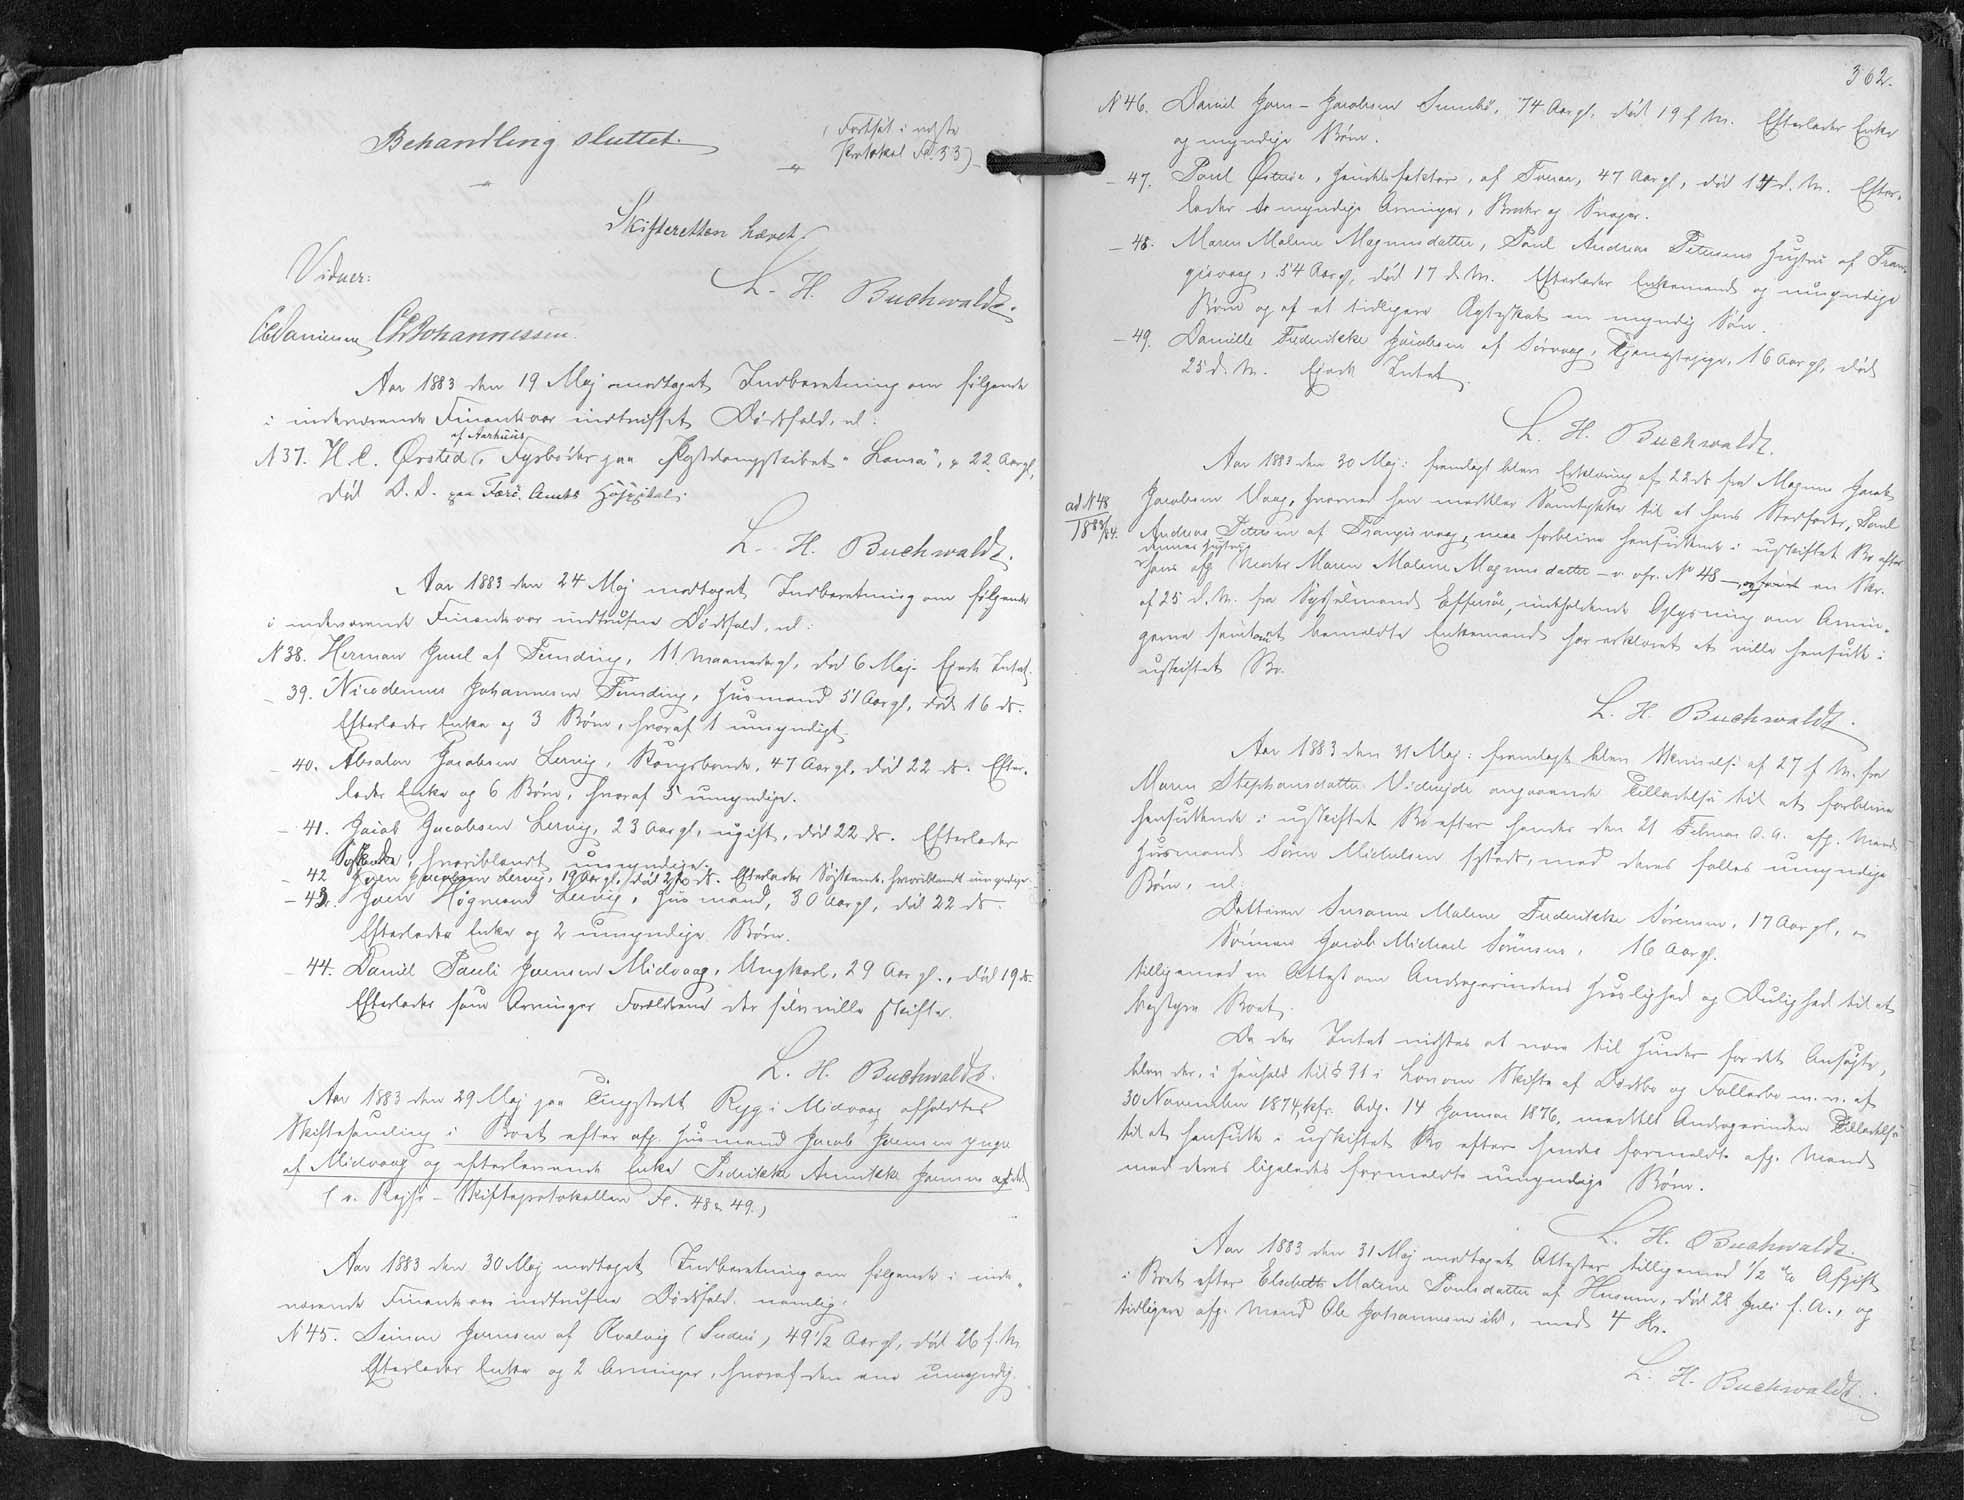 Behandling sluttet.
(Fortsat i næste
Protokol Fol. 53)
Skifteretten hævet.
L. H. Buchwaldt.
Vidner:
Danielsen Johannessen.
Aar 1883 den 19 Maj modtaget Indberetning om følgende
i indeværende Finantsaar indtruffet Dødsfald, nl:
af Aarhuus
N 37. H. C. Ørsted, Fyrbøder paa Postdampskibet "Laura", 22 Aar gl,
død D. D. paa Færø Amts Hospital.
L. H. Buchwaldt.
Aar 1883 den 24 Maj modtaget Indberetning om følgende
i indeværende Finantsaar indtrufne Dødsfald, nl:
N 38. Herman Juul af Funding, 11 Maaneder gl, død 6 Maj. Ejede Intet.
- 39. Nicodemus Johannesen Funding, Husmand 51 Aar gl, død 16 ds.
Efterlader Enke og 3 Børn, hvoraf 1 umyndigt.
- 40. Absalon Jacobsen Lervig, Kongsbonde, 47 Aar gl, død 22 ds. Efter-
lader Enke og 6 Børn, hvoraf 5 umyndige.
- 41. Jacob Jacobsen Lervig, 23 Aar gl, ugift, død 22 ds. Efterlader
Søskende, hvoriblandt umyndige.
- 42 Joen Jacobsen Lervig, 19 Aar gl, død 22 ds. Efterlader Søskende, hvoriblandt umyndige.
- 43. Joen Høgnesen Lervig, Husmand, 30 Aar gl, død 22 ds.
Efterlader Enke og 2 umyndige Børn.
- 44. Daniel Pauli Joensen Midvaag, Ungkarl, 29 Aar gl., død 19 ds.
Efterlader som Arvinger Forældrene der selv ville skifte.
L. H. Buchwaldt.
Aar 1883 den 29 Maj paa Tingstedet Ryg i Midvaag afholdtes
Skiftesamling i Boet efter afg. Husmand Jacob Joensen yngre
af Midvaag og efterlevende Enke Fredrikke Annikke Joensen
(v. Rejse-Skifteprotokollen Fol. 48 & 49.)
Aar 1883 den 30 Maj modtaget Indberetning om følgende i inde-
værende Finantsaar indtrufne Dødsfald, nemlig:
N 45. Simon Joensen af Kvalvig (Suderø), 49 1/2 Aar gl, død 26 f. M.
Efterlader Enke og 2 Arvinger, hvoraf den ene umyndig.
362.
N 46. Daniel Joen-Jacobsen Sumbø, 74 Aar gl. død 19 f. M. Efterlader Enke
og myndige Børn.
- 47. Poul Østerø, Handelsfaktor, af Fuuæ, 47 Aar gl, død 14 d. M. Efter-
lader to myndige Arvinger, Broder og Svoger.
- 48. Maren Malene Magnusdatter, Poul Andreas Petersens Hustru af Tran-
gisvaag, 54 Aar gl, død 17 d. M. Efterlader Enkemand og umyndige
Børn og af et tidligere Ægteskab en myndig Søn.
- 49. Danielle Frederikke Jacobsen af Sørvaag, Tjenestepige, 16 Aar gl, død
25 d. M. Ejede Intet.
L. H. Buchwaldt.
Aar 1883 den 30 Maj: fremlagt blev Erklæring af 22 ds fra Magnus Jacob
ad N 48
1883/84.
Jacobsen Vaag, hvorved han meddeler Samtykke til at hans Stedfader, Poul
Andreas Petersen af Trangisvaag, maa forblive hensiddende i uskiftet Bo efter
dennes Hustru
hans afg. Moder Maren Malene Magnusdatter - v. ofr. No 48 - en Skr.
af 25 d. M. fra Sysselmand Effersøe, indeholdende Oplysning om Arvin-
gerne samt at bemeldte Enkemand har erklæret at ville hensidde i
uskiftet Bo.
L. H. Buchwaldt.
Aar 1883 den 31 Maj: fremlagt blev Skrivelse af 27 f. M. fra
Maren Stephansdatter Viderejde angaaende Tilladelse til at forblive
hensiddende i uskiftet Bo efter hendes den 21 Februar d. A. afg. Mand
Husmand Sören Michelsen sstds, med deres fælles umyndige
Børn, nl:
Datteren Susanne Malene Frederikke Sörensen, 17 Aar gl, &
Sönnen Jacob Michael Sörensen, 16 Aar gl.
tilligemed en Attest om Andragerindens Huuslighed og Duelighed til at
bestyre Boet.
Da der Intet vidstes at være til Hinder for det Ansøgte,
blev der, i Henhold til § 91 i Lov om Skifte af Dødsbo og Fællesbo m. v. af
30 November 1874, kfr. Adg. 14 Januar 1876, meddelt Andragerinden Tilladelse
til at hensidde i uskiftet Bo efter hendes formeldte afg. Mand
med deres ligeledes formeldte umyndige Børn.
L. H. Buchwaldt.
Aar 1883 den 31 Maj modtaget Attester tilligemed 1/2 % Afgift
i Boet efter Elsebeth Malene Poulsdatter af Husum, død 28 Juli f. A., og
tidligere afg. Mand Ole Johannesen ibd, med 4 Kr.
L. H. Buchwaldt.